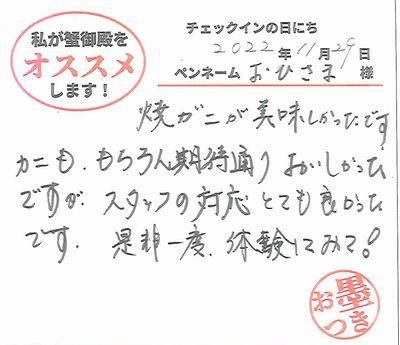 私が蟹御殿を
オススメ
します！
チェックインの日にち
2022年11月29日
ペンネーム おひさま 様
焼ガニが美味しかったです
カニも、もちろん期待通りおいしかった
ですが スタッフの対応とても良かった
です。是非一度、体験してみて！
お墨つき